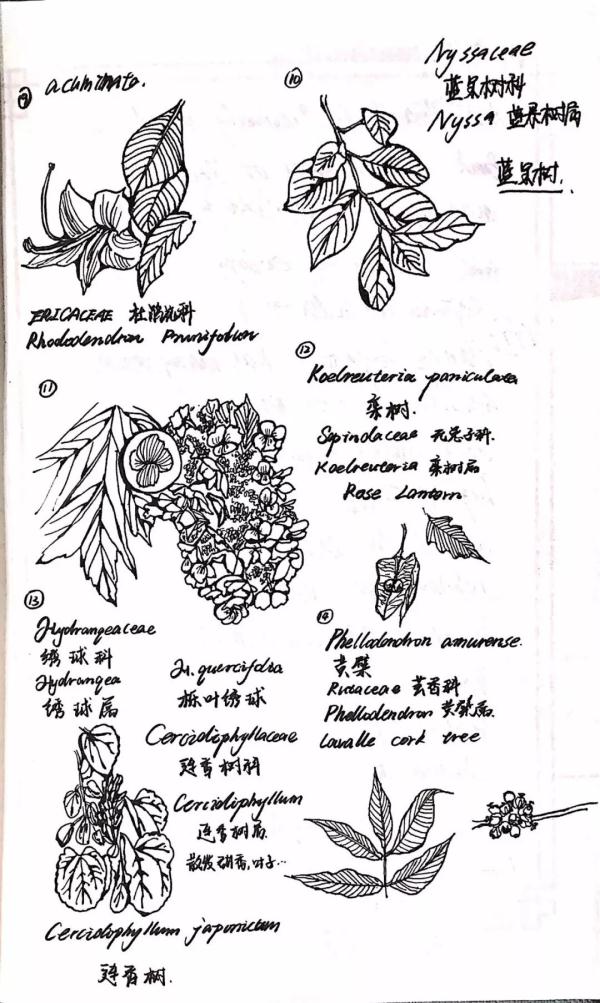 ⑨ acuminata.
ERICACEAE 杜鹃花科
Rhododendron Prunifolium
⑩
Nyssaceae
蓝果树科
Nyssa 蓝果树属
蓝果树.
⑪
⑫
Koelreuteria paniculata
栾树.
Sapindaceae 无患子科.
Koelreuteria 栾树属
Rose Lantern
⑬
Hydrangeaceae
绣球科
Hydrangea
绣球属
H. quercifolia
栎叶绣球
Cercidiphyllaceae
连香树科
Cercidiphyllum
连香树属.
散发甜香,叶子…
Cercidiphyllum japonicum
连香树.
⑭
Phellodendron amurense.
黄檗
Rutaceae 芸香科
Phellodendron 黄檗属.
Lavalle cork tree